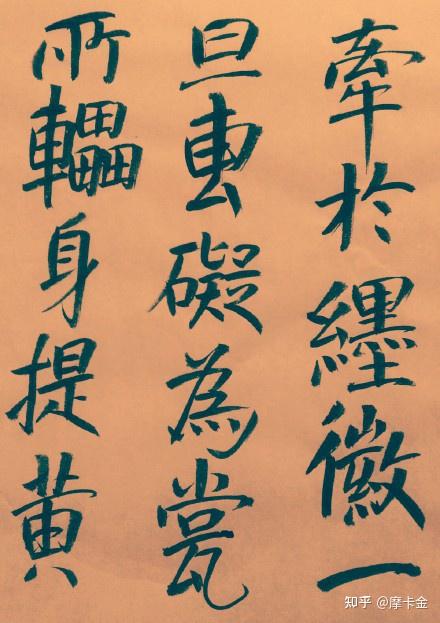 牽於纆徽一
旦叀礙為瓽
所轠身提黄
知乎 @摩卡金